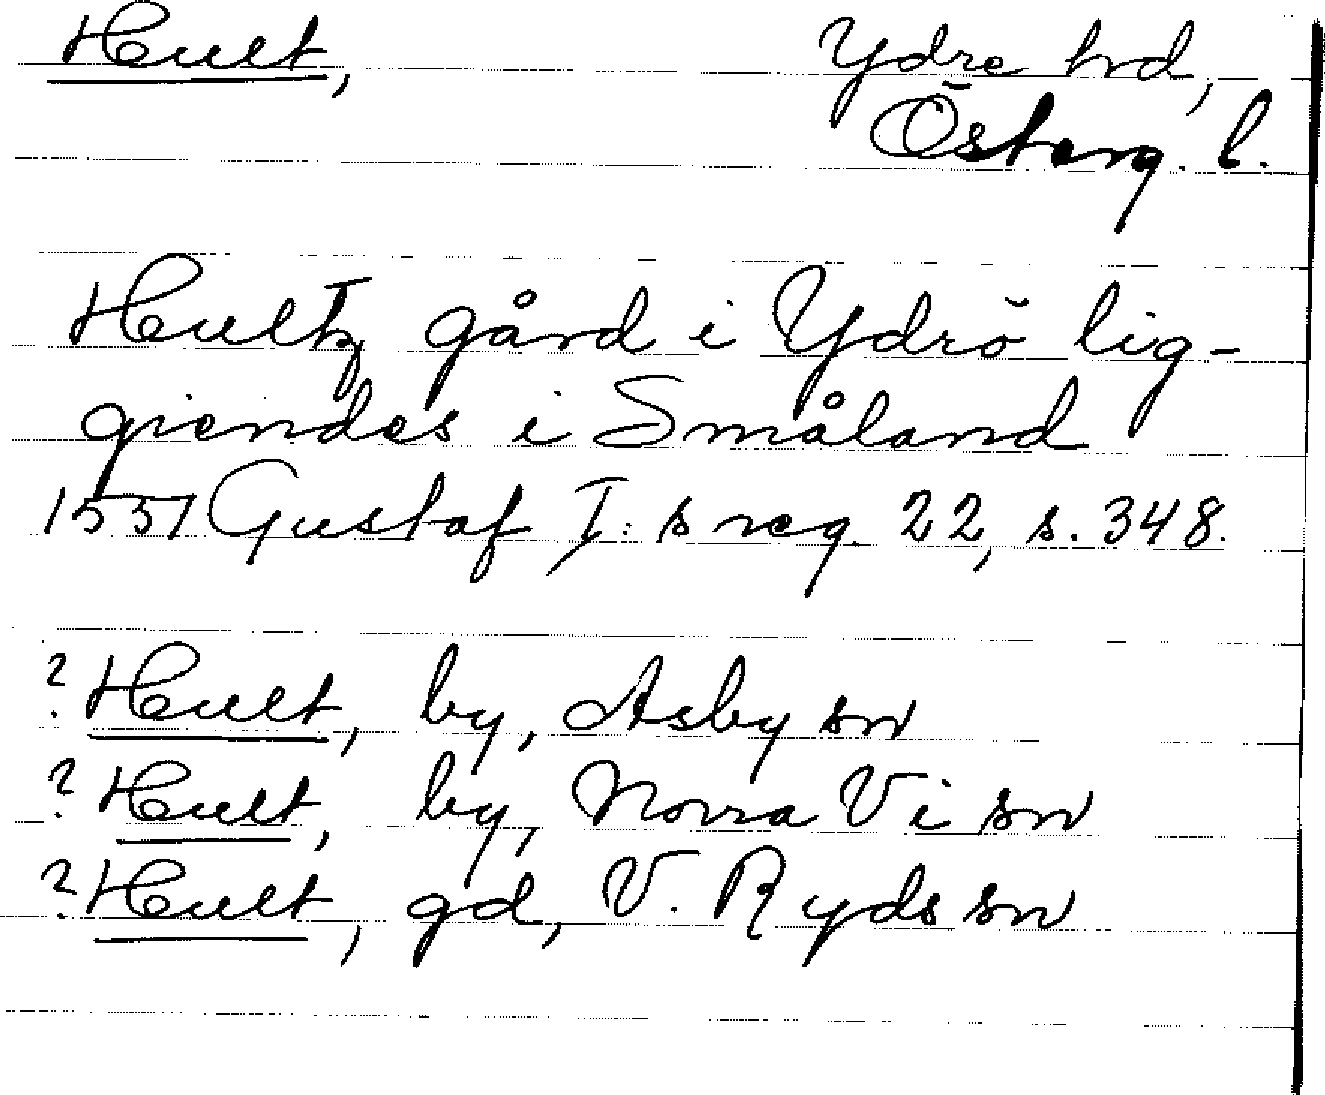 Hult, Ydre hrd,
Österg. l.
Hultz gård i Ydrö lig-
giendes i Småland
1551 Gustaf I:s reg. 22, s. 348.
? Hult, by, Asby sn
? Hult, by, Norra Vi sn
? Hult, gd, V. Ryds sn